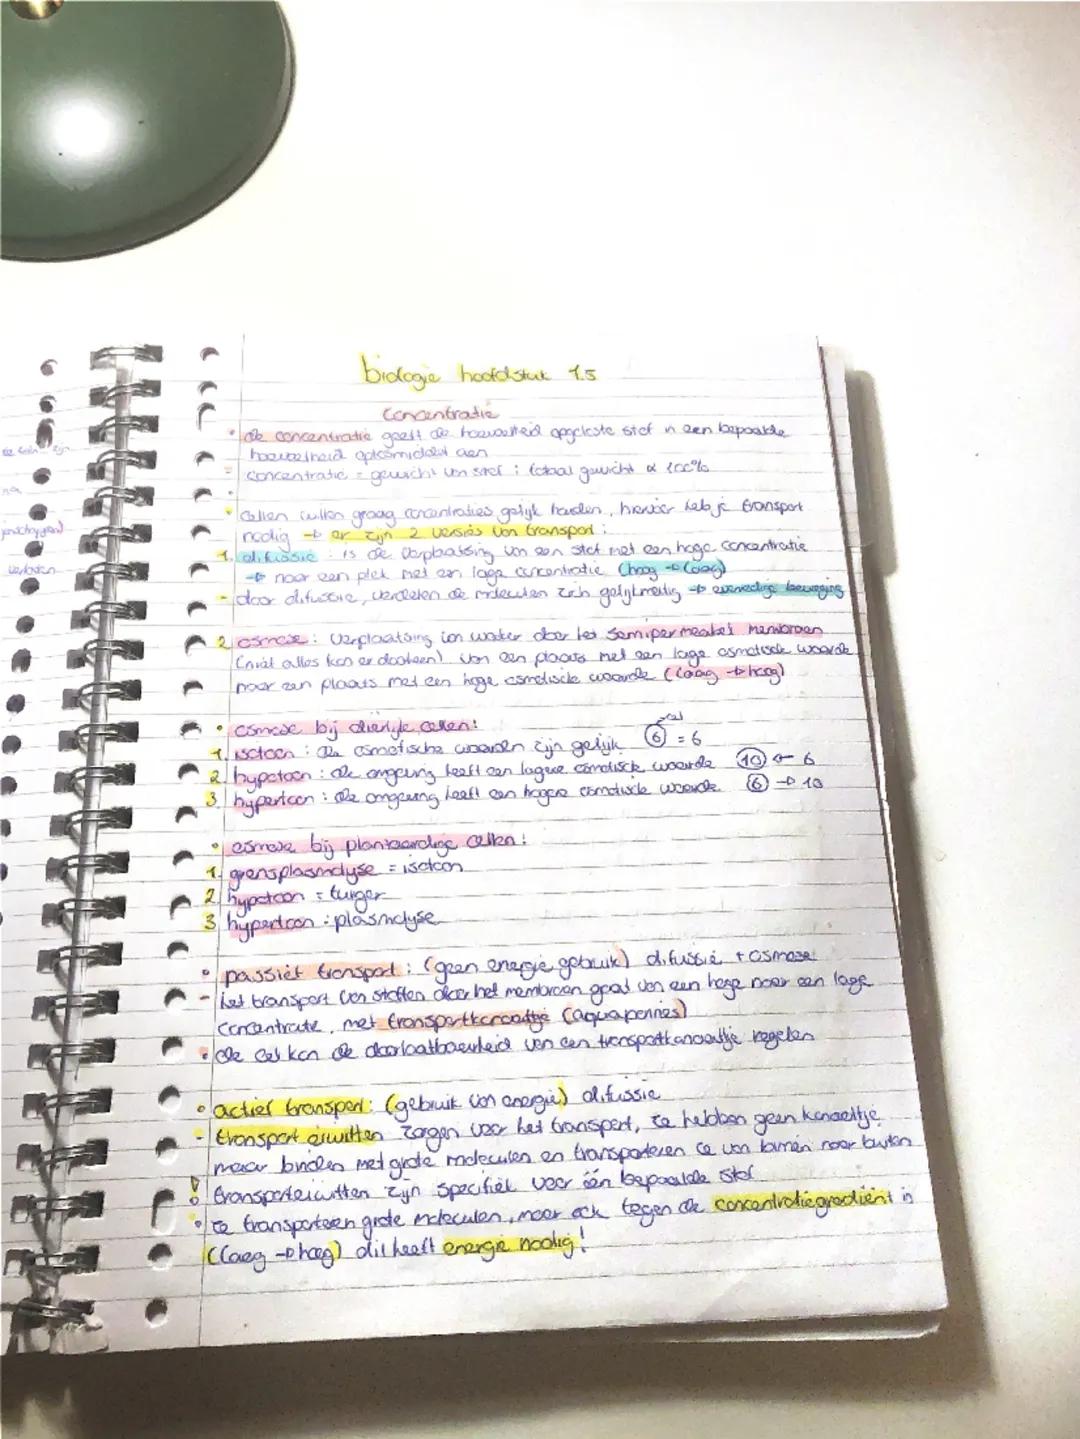 biologie hoofdstuk 1.5
Concentratie
• de concentratie geeft de hoeveelheid opgeloste stof in een bepaalde
hoeveelheid oplosmiddel aan
- concentratie = gewicht van stof : totaal gewicht x 100%
• Cellen willen graag concentraties gelijk houden, hiervoor heb je transport
nodig → er zijn 2 versies van transport:
1. difussie : is de verplaatsing van een stof met een hoge concentratie
→ naar een plek met een lage concentratie (hoog → laag)
- door difussie, verdelen de moleculen zich gelijkmatig → evenredige beweging
2 osmose: verplaatsing van water door het semipermeabel membraan
(niet alles kan er doorheen) van een plaats met een lage osmotische waarde
naar een plaats met een hoge osmotische waarde (laag → hoog)
• osmose bij dierlijke cellen:
cel
1. isotoon : de osmotische waarden zijn gelijk 6 = 6
2 hypotoon : de omgeving heeft een lagere osmotisch waarde 10 ← 6
3 hypertoon : de omgeving heeft een hogere osmotische waarde 6 → 10
• osmose bij plantaardige cellen:
1. grensplasmolyse = isotoon
2 hypotoon = turgor
3 hypertoon : plasmolyse
• passief transport : (geen energie gebruik) difussie + osmose
- het transport van stoffen door het membraan gaat van een hoge naar een lage
concentratie, met transportkanaaltje (aquaporines)
• de cel kan de doorlaatbaarheid van een transportkanaaltje regelen
• actief transport: (gebruik van energie) difussie
- transport eiwitten zorgen voor het transport, ze hebben geen kanaaltje
maar binden met grote moleculen en transporteren ze van binnen naar buiten
transporteiwitten zijn specifiek voor één bepaalde stof
• ze transporteren grote moleculen, maar ook tegen de concentratiegradiënt in
(laag → hoog) dit heeft energie nodig!